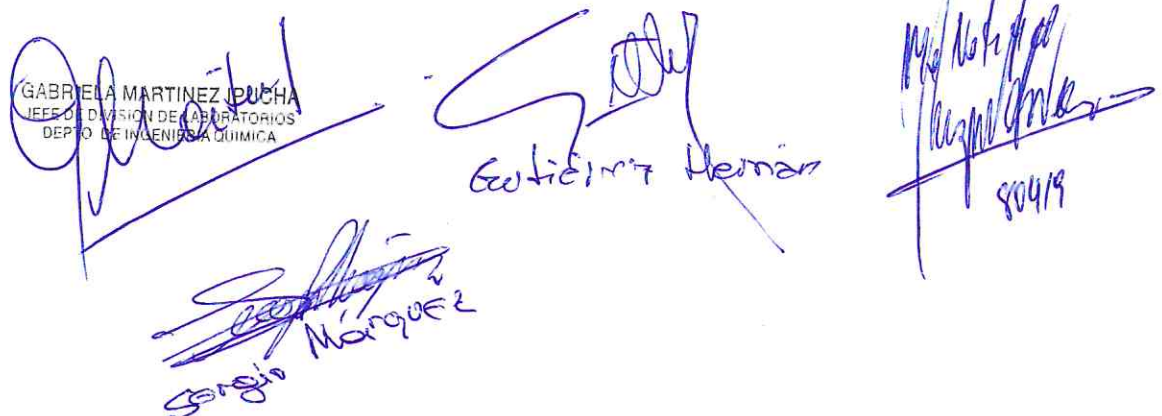 GABRIELA MARTINEZ
JEFE DE DIVISION DE LABORATORIOS
DEPTO DE INGENIERIA QUIMICA
Gutiérrez Hernán
Me Notifico
80419
Sergio Márquez